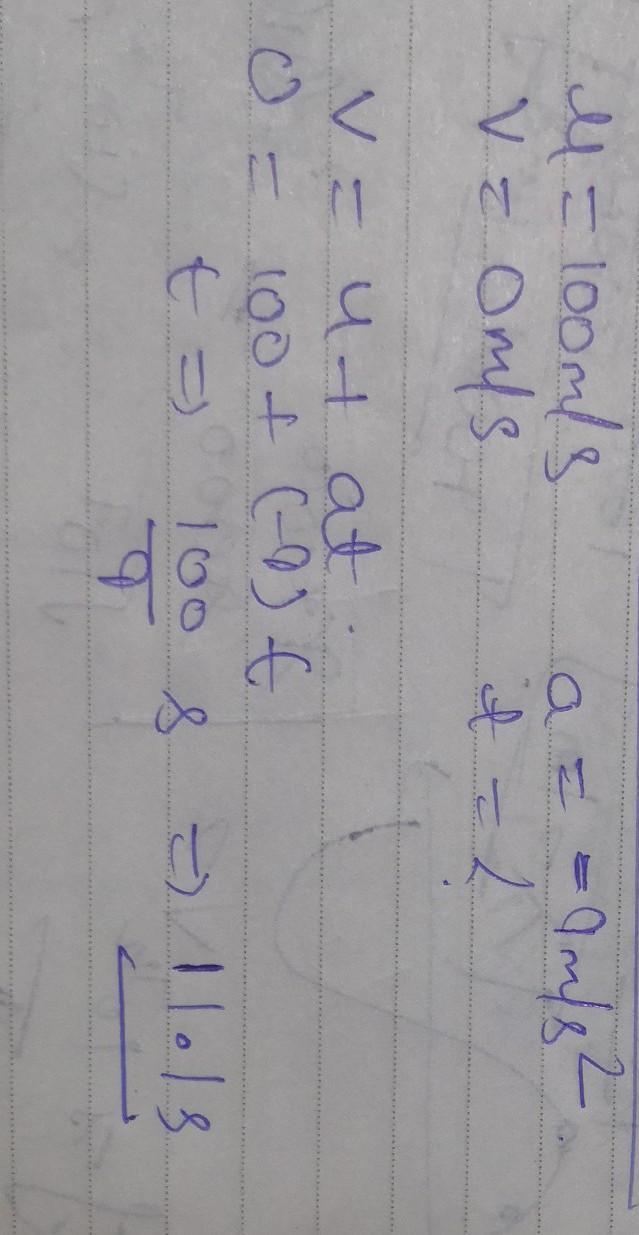 u = 100m/s a = -9m/s²
v = 0m/s t = ?
v = u + at
0 = 100 + (-9)t
t => 100/9 s => 11.1s